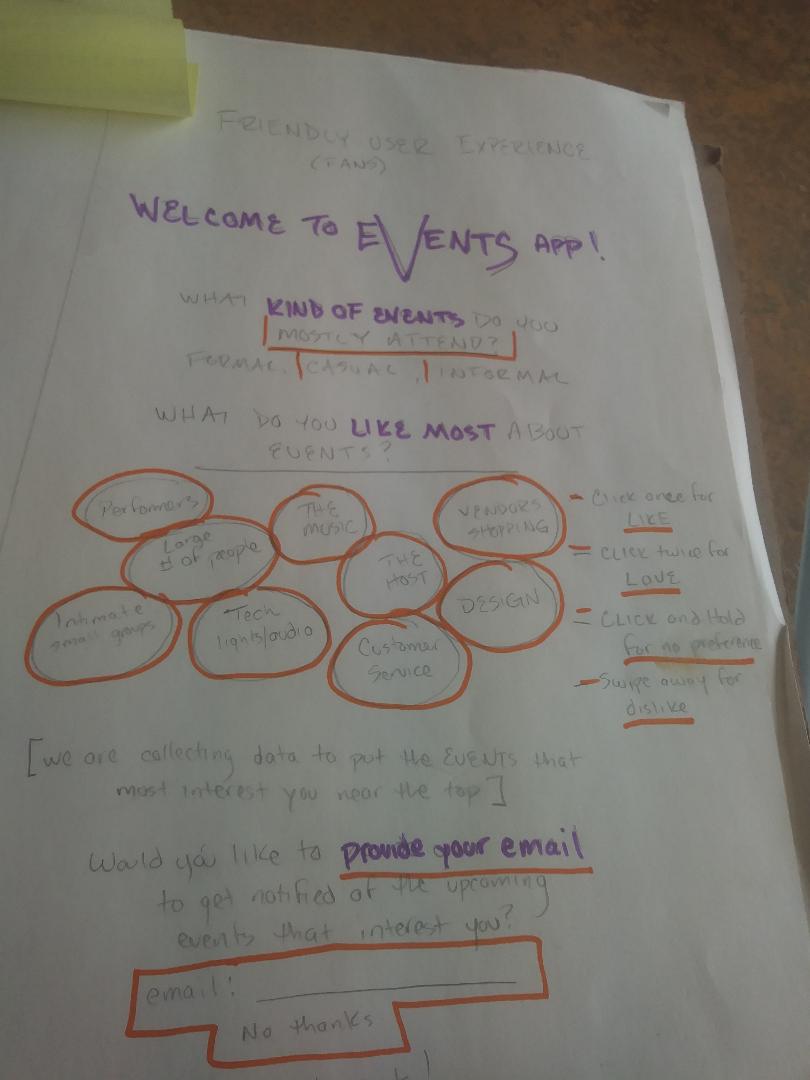 FRIENDLY USER EXPERIENCE
(FANS)
WELCOME TO EVENTS APP!
WHAT KIND OF EVENTS DO YOU
MOSTLY ATTEND?
FORMAL, CASUAL, INFORMAL
WHAT DO YOU LIKE MOST ABOUT
EVENTS?
Performers
Large
# of people
THE
MUSIC
THE
HOST
VENDORS
SHOPPING
Intimate
small groups
Tech
lights/audio
Customer
Service
DESIGN
- Click once for
LIKE
= CLICK twice for
LOVE
= CLICK and Hold
for no preference
- Swipe away for
dislike
[we are collecting data to put the EVENTS that
most interest you near the top]
Would you like to provide your email
to get notified of the upcoming
events that interest you?
email:
No thanks